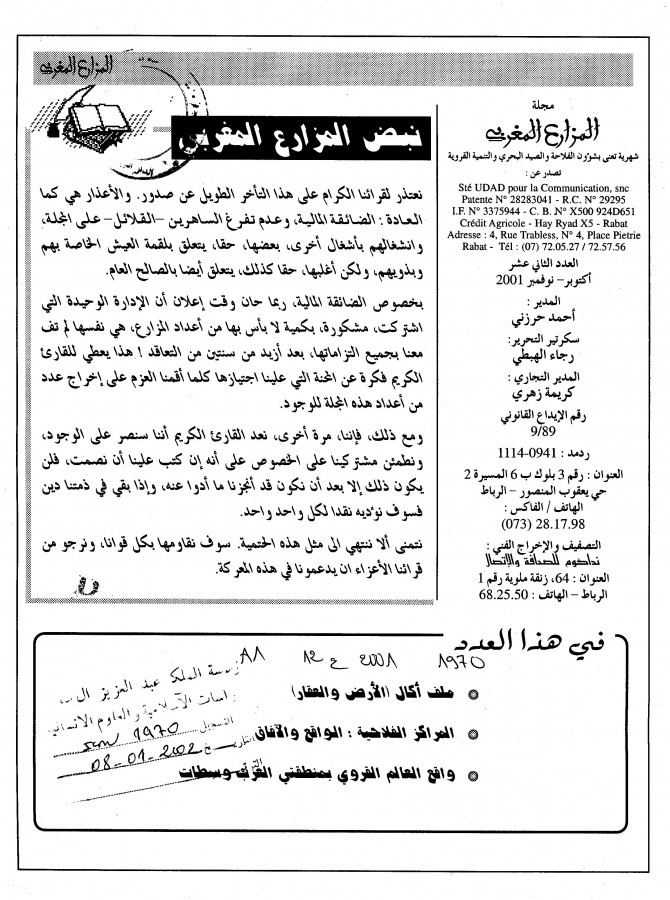 المزارع المغربي
مجلة
المزارع المغربي
شهرية تعنى بشؤون الفلاحة والصيد البحري والتنمية القروية
تصدر عن :
Sté UDAD pour la Communication, snc
Patente N° 28283041 - R.C. N° 29295
I.F. N° 3375944 - C. B. N° X500 924D651
Crédit Agricole - Hay Ryad X5 - Rabat
Adresse : 4, Rue Trabless, N° 4, Place Pietrie
Rabat - Tél : (07) 72.05.27 / 72.57.56
العدد الثاني عشر
أكتوبر- نوفمبر 2001
المدير :
أحمد حرزني
سكرتير التحرير:
رجاء الهبطي
المدير التجاري :
كريمة زهري
رقم الإيداع القانوني
9/89
ردمد : 0941-1114
العنوان : رقم 3 بلوك ب 6 المسيرة 2
حي يعقوب المنصور – الرباط
الهاتف / الفاكس :
(073) 28.17.98
التصفيف والإخراج الفني :
نداكوم للصحافة والإتصال
العنوان : 64، زنقة ملوية رقم 1
الرباط – الهاتف : 68.25.50
نبض المزارع المغربي
نعتذر لقرائنا الكرام على هذا التأخر الطويل عن صدور. والأعذار هي كما
العادة : الضائقة المالية، وعدم تفرغ الساهرين -القلائل- على المجلة،
وانشغالهم بأشغال أخرى، بعضها، حقا، يتعلق بلقمة العيش الخاصة بهم
وبذويهم، ولكن أغلبها، حقا كذلك، يتعلق أيضا بالصالح العام.
بخصوص الضائقة المالية، ربما حان وقت إعلان أن الإدارة الوحيدة التي
اشتركت، مشكورة، بكمية لا بأس بها من أعداد المزارع، هي نفسها لم تف
معنا بجميع التزاماتها، بعد أزيد من سنتين من التعاقد ! هذا يعطي للقارئ
الكريم فكرة عن المحنة التي علينا اجتيازها كلما أقمنا العزم على إخراج عدد
من أعداد هذه المجلة للوجود.
ومع ذلك، فإننا، مرة أخرى، نعد القارئ الكريم أننا سنصر على الوجود،
ونطمئن مشتركينا على الخصوص على أنه إن كتب علينا أن نصمت، فلن
يكون ذلك إلا بعد أن نكون قد أنجزنا ما أدوا عنه، وإذا بقي في ذمتنا دين
فسوف نؤديه نقدا لكل واحد واحد.
نتمنى ألا ننتهي الى مثل هذه الحتمية. سوف نقاومها بكل قوانا، ونرجو من
قرائنا الأعزاء ان يدعمونا في هذه المعركة.
في هذا العدد
A1 12 ع 2001 1970
ملف أكال (الأرض والعقار)
المراكز الفلاحية : الواقع والآفاق
واقع العالم القروي بمنطقتي الغرب وسطات
مؤسسة الملك عبد العزيز آل سعود
للدراسات الإسلامية والعلوم الإنسانية
التسجيل 1970
التاريخ 08-01-2002